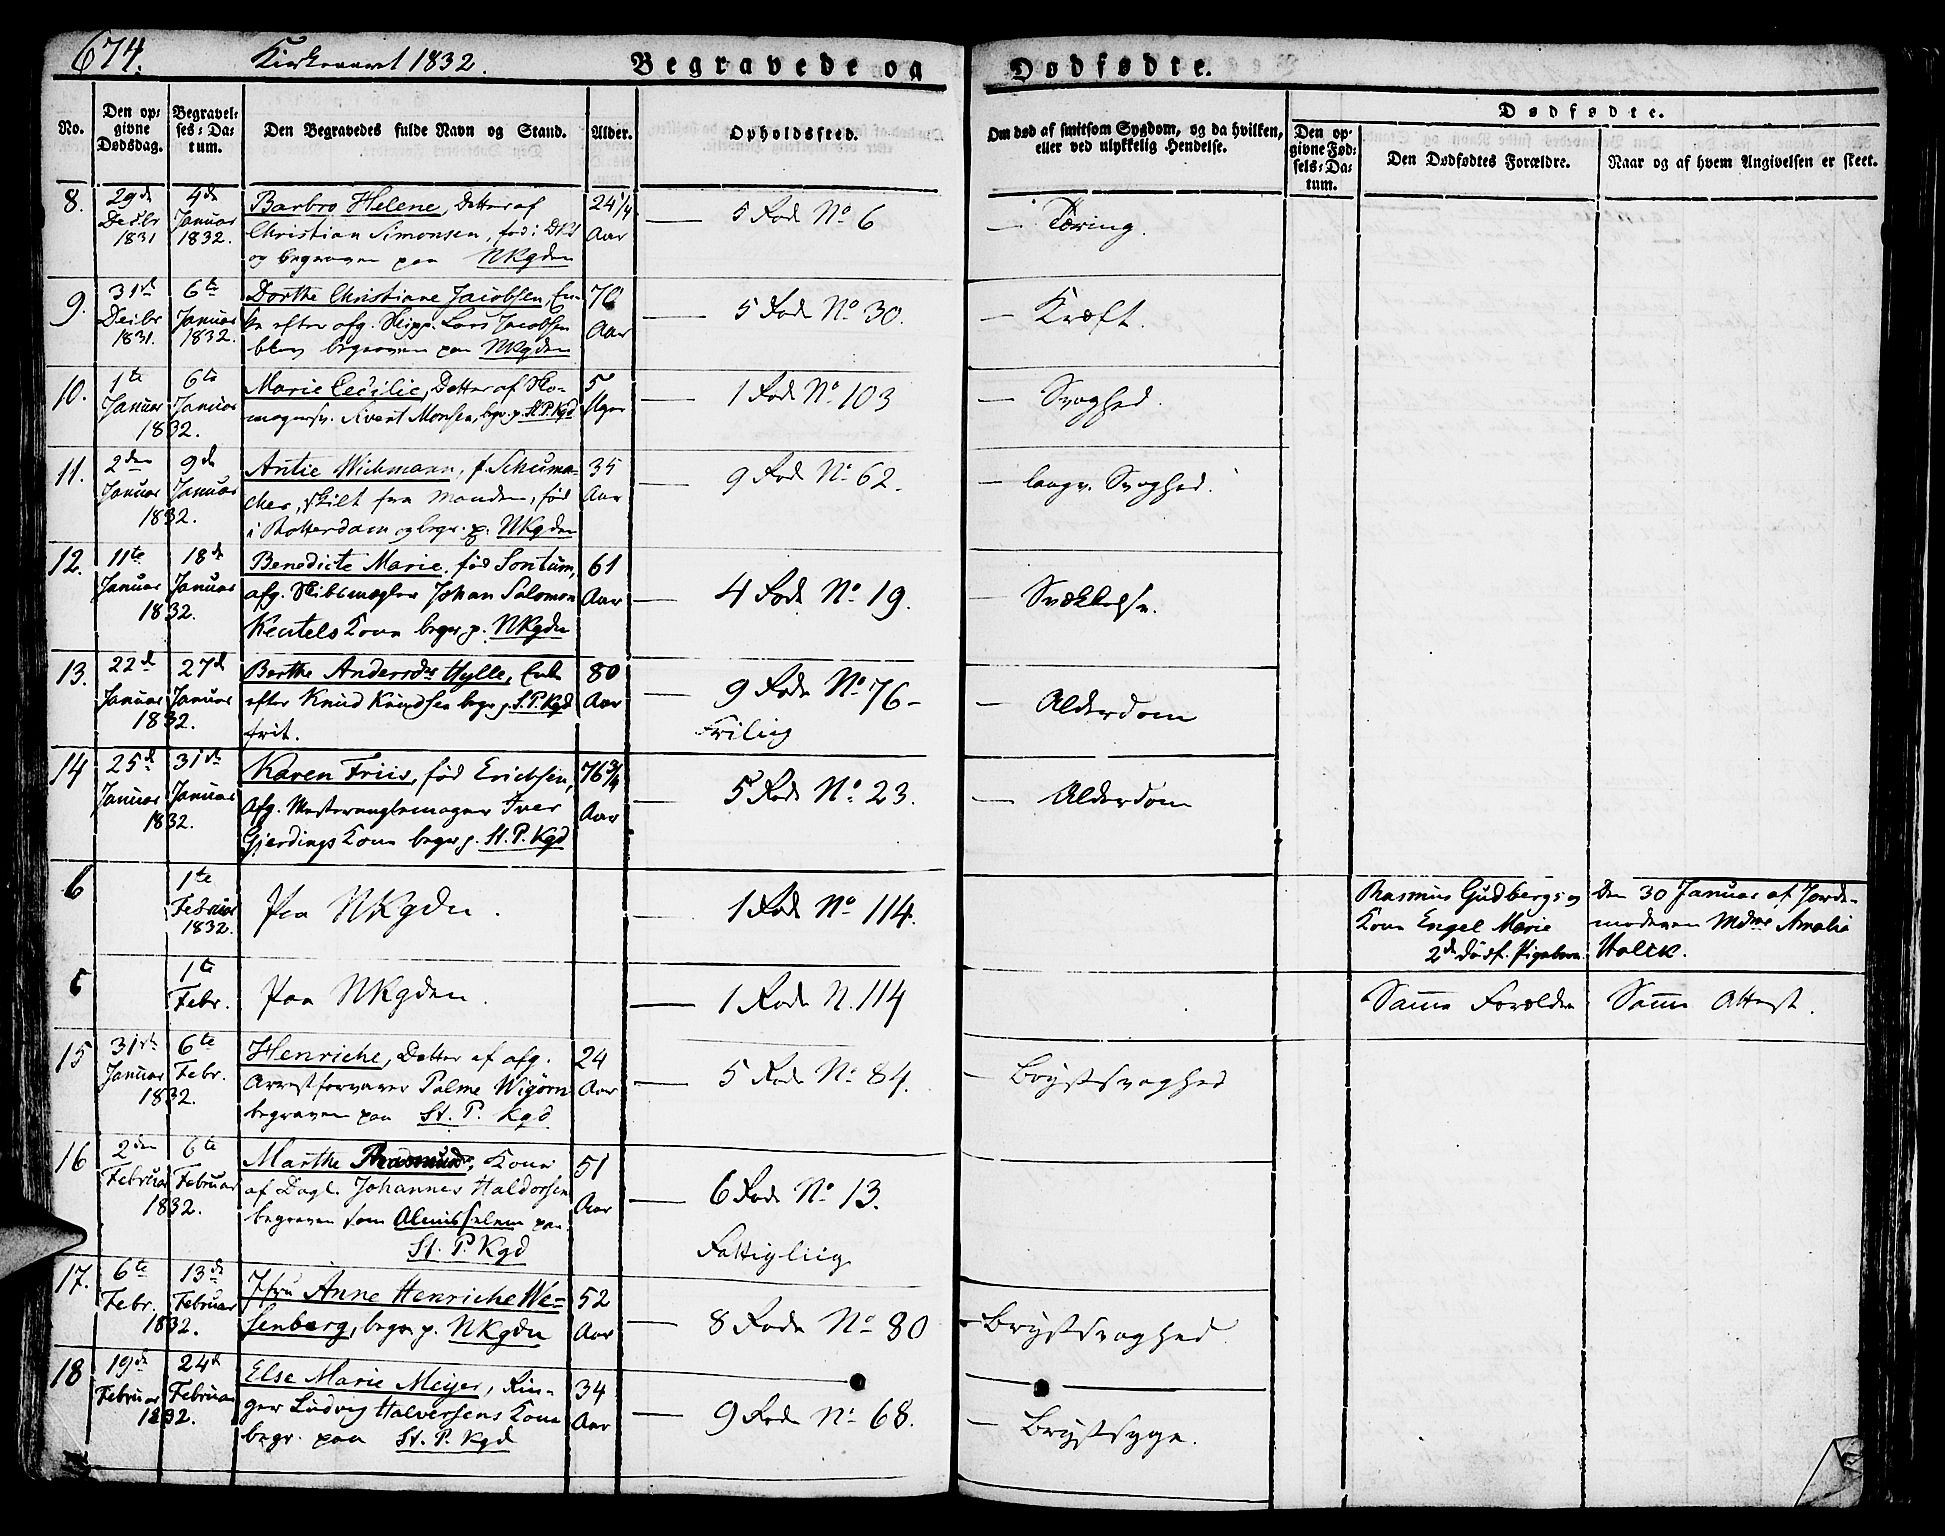 674.
Kirkeaaret 1832.
Begravede og Dødfødte.
No.
Den opgivne Dødsdag.
Begravelses-Datum.
Den Begravedes fulde Navn og Stand.
Alder.
Opholdssted.
Om død af smitsom Sygdom, og da hvilken, eller ved ulykkelig Hendelse.
Dødfødte.
Den opgivne Fødsels-Datum.
Den Dødfødtes Forældre.
Naar og af hvem Angivelsen er skeet.
8.
29de Decbr 1831
4de Januar 1832.
Barbro Helene, Datter af
Christian Simonsen, fød i
og begraven paa NKgden
24 1/4 Aar
5 Rode No 6
Tæring.
9.
31te Decbr 1831.
6te Januar 1832.
Dorthe Christiane Jacobsen, En-
ke efter afg. Skipp. Lars Jacobsen
blev begraven paa NKgden
70 Aar
5 Rode No 30.
Kræft.
10.
1te Januar 1832.
6te Januar
Marie Cecilie, Datter af Sko-
magersv. Sivert Monsen, begr. p. St P. Kgd
5 Uger
1 Rode No 103
Svaghed.
11.
2den Januar 1832.
9de Januar
Antie Wichmann, f. Schuma-
cher, skilt fra Manden, fød
i Rotterdam og begr. p. NKgden
35 Aar
9 Rode No 62.
langv. Svaghed.
12.
11te Januar 1832.
18de Januar
Benedicte Marie, fød Sontum,
afg. Skibsmægler Johan Salomon
Keutels Kone begr. p. NKgden
61 Aar
4 Rode No 19.
Svækkelse.
13.
22de Januar 1832.
27de Januar
Berthe Andersdr Hylle, Enke
efter Knud Knudsen begr. p. S. P. Kgd
frit.
80 Aar
9 Rode No 76-
Frilig
Alderdom
14
25de Januar 1832.
31te Januar
Karen Friis, fød Erichsen,
afg. Mæsterangelmager Iver
Gjerdings Kone begr p. St. P. Kgd
76 3/4 Aar
5 Rode No 23.
Alderdom
6
1te Februar 1832.
Paa NKgden.
1 Rode No 114.
Rasmus Gudbergs og
Kone Engel Marie
2de dødf. Pigebørn.
Den 30 Januar af Jorde-
moderen Mdme Amalia
Holck.
1te Febr.
Paa NKgden.
1 Rode N. 114
Samme Forældre
Samme Attest.
15
31te Januar 1832.
6te Febr.
Henriche, Datter af afg.
Arrestforvarer Palme Wigørn
begraven paa St. P. Kgd.
24 Aar
5 Rode No 84.
Brystsvaghed
16
2den Februar 1832.
6te Februar
Marthe Rasmusdr, Kone
af Dagl. Johannes Haldorsen
begraven som Almisselem paa
St. P. Kgd
51 Aar
6 Rode No 13.
Fattigliig
17.
6te Febr. 1832.
13de Februar
Jfru Anne Henriche We-
senberg, begr. p. NKgden
52 Aar
8 Rode No 80
Brystsvaghed.
18
19de Februar 1832.
24de Februar
Else Marie Meyer, Rin-
ger Ludvig Halversens Kone
begr. paa St. P. Kgd
34 Aar
9 Rode No 68.
Brystsyge.